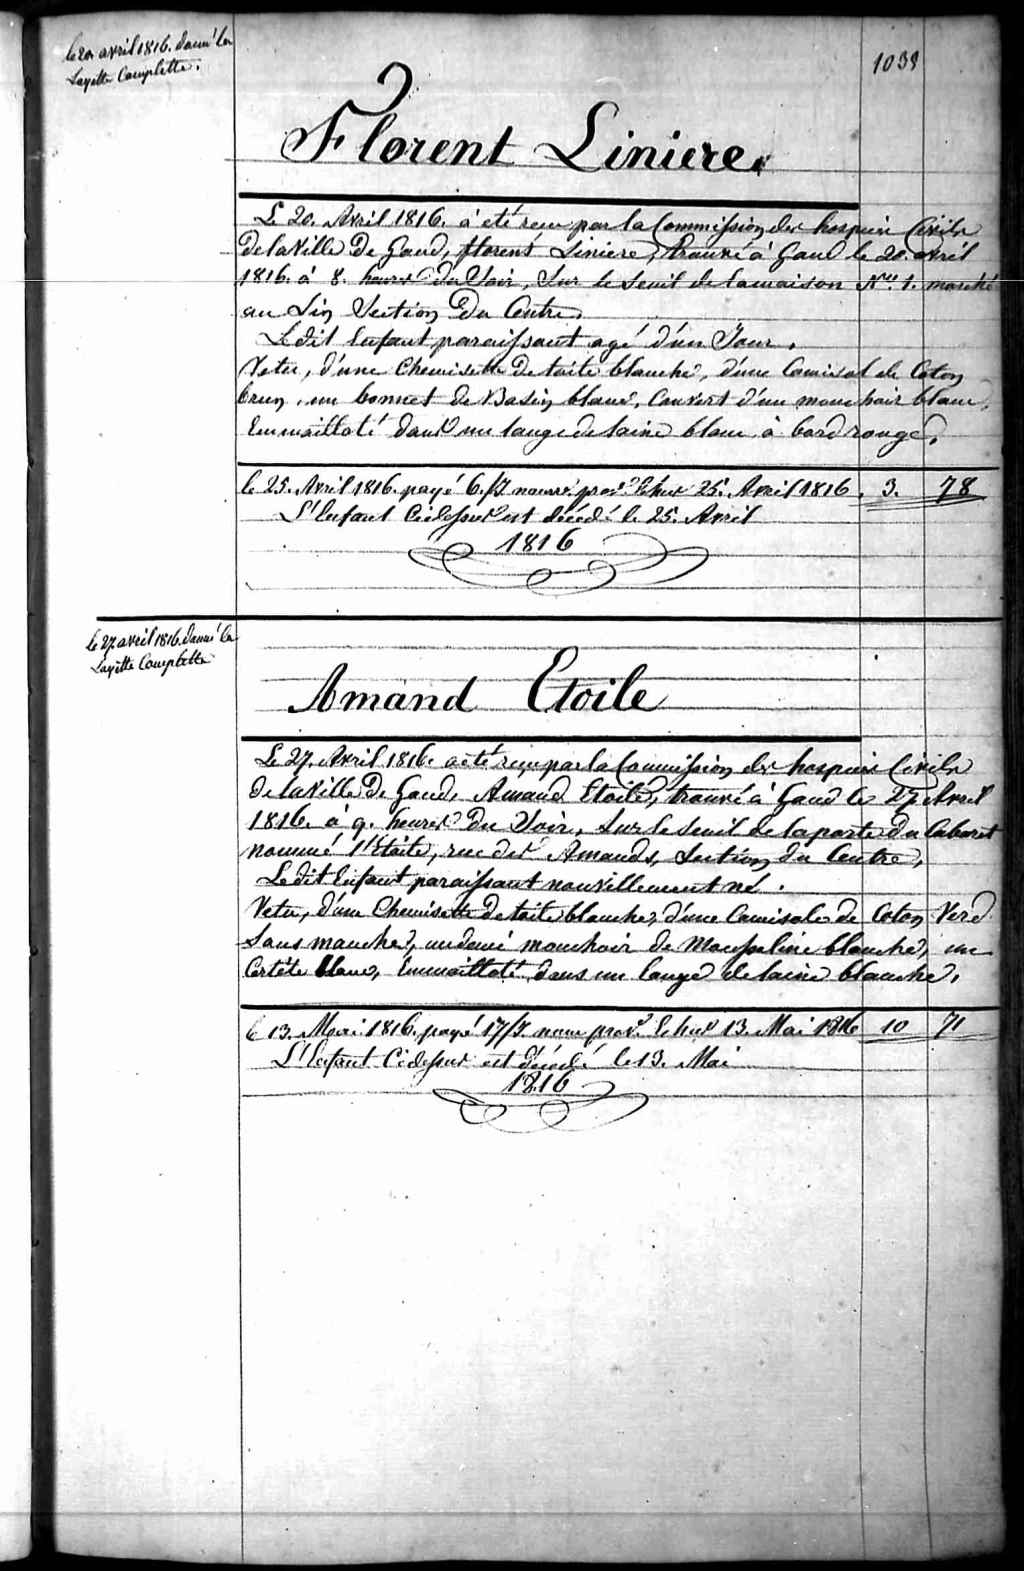 le 20 avril 1816. donné la
Layette Complette.
1038
Florent Liniere.
Le 20. Avril 1816. a été recu par la Commission des hospices Civils
De la Ville De Gand, florent Liniere, trouvé à Gand le 20. avril
1816. à 8. heures du Soir, Sur le Seuil de la maison N.º 1. marché
au Lin Section du Centre.
Le dit Enfant paraissant agé d'un Jour.
Vetu, d'une Chemisette De toile blanche, d'une Camisol de Coton
brun, un bonnet de Basin blanc, Couvert d'un mouchoir blanc,
Emmailloté dans un lange de laine blanc à bord rouge.
le 25. Avril 1816. payé 6./J. nourr. prov.e Echus 25. Avril 1816. 3. 78
L'Enfant Cidessus est décédé le 25. Avril
1816
le 27 avril 1816. donné la
Layette Complette
Amand Etoile
Le 27. Avril 1816. a été reçu par la Commission des hospices Civils
de la Ville De Gand, Amand Etoile, trouvé à Gand le 27 Avril
1816. à 9. heures Du Soir, Sur le Seuil de la porte du Cabaret
nommé l'Etoile, rue des Amands, Section du Centre,
Le dit Enfant paraissant nouvellement né.
Vetu, d'une Chemisette de toile blanche, d'une Camisole de Coton Verd
Sans manches, un demi mouchoir de Mousseline blanche, un
Certête blanc, Emmailloté dans un lange de laine blanche.
le 13. Mai 1816. payé 17/J. nourr prov.e Echus 13. Mai 1816 10 71
L'Enfant Cidessus est décédé le 13. Mai
1816